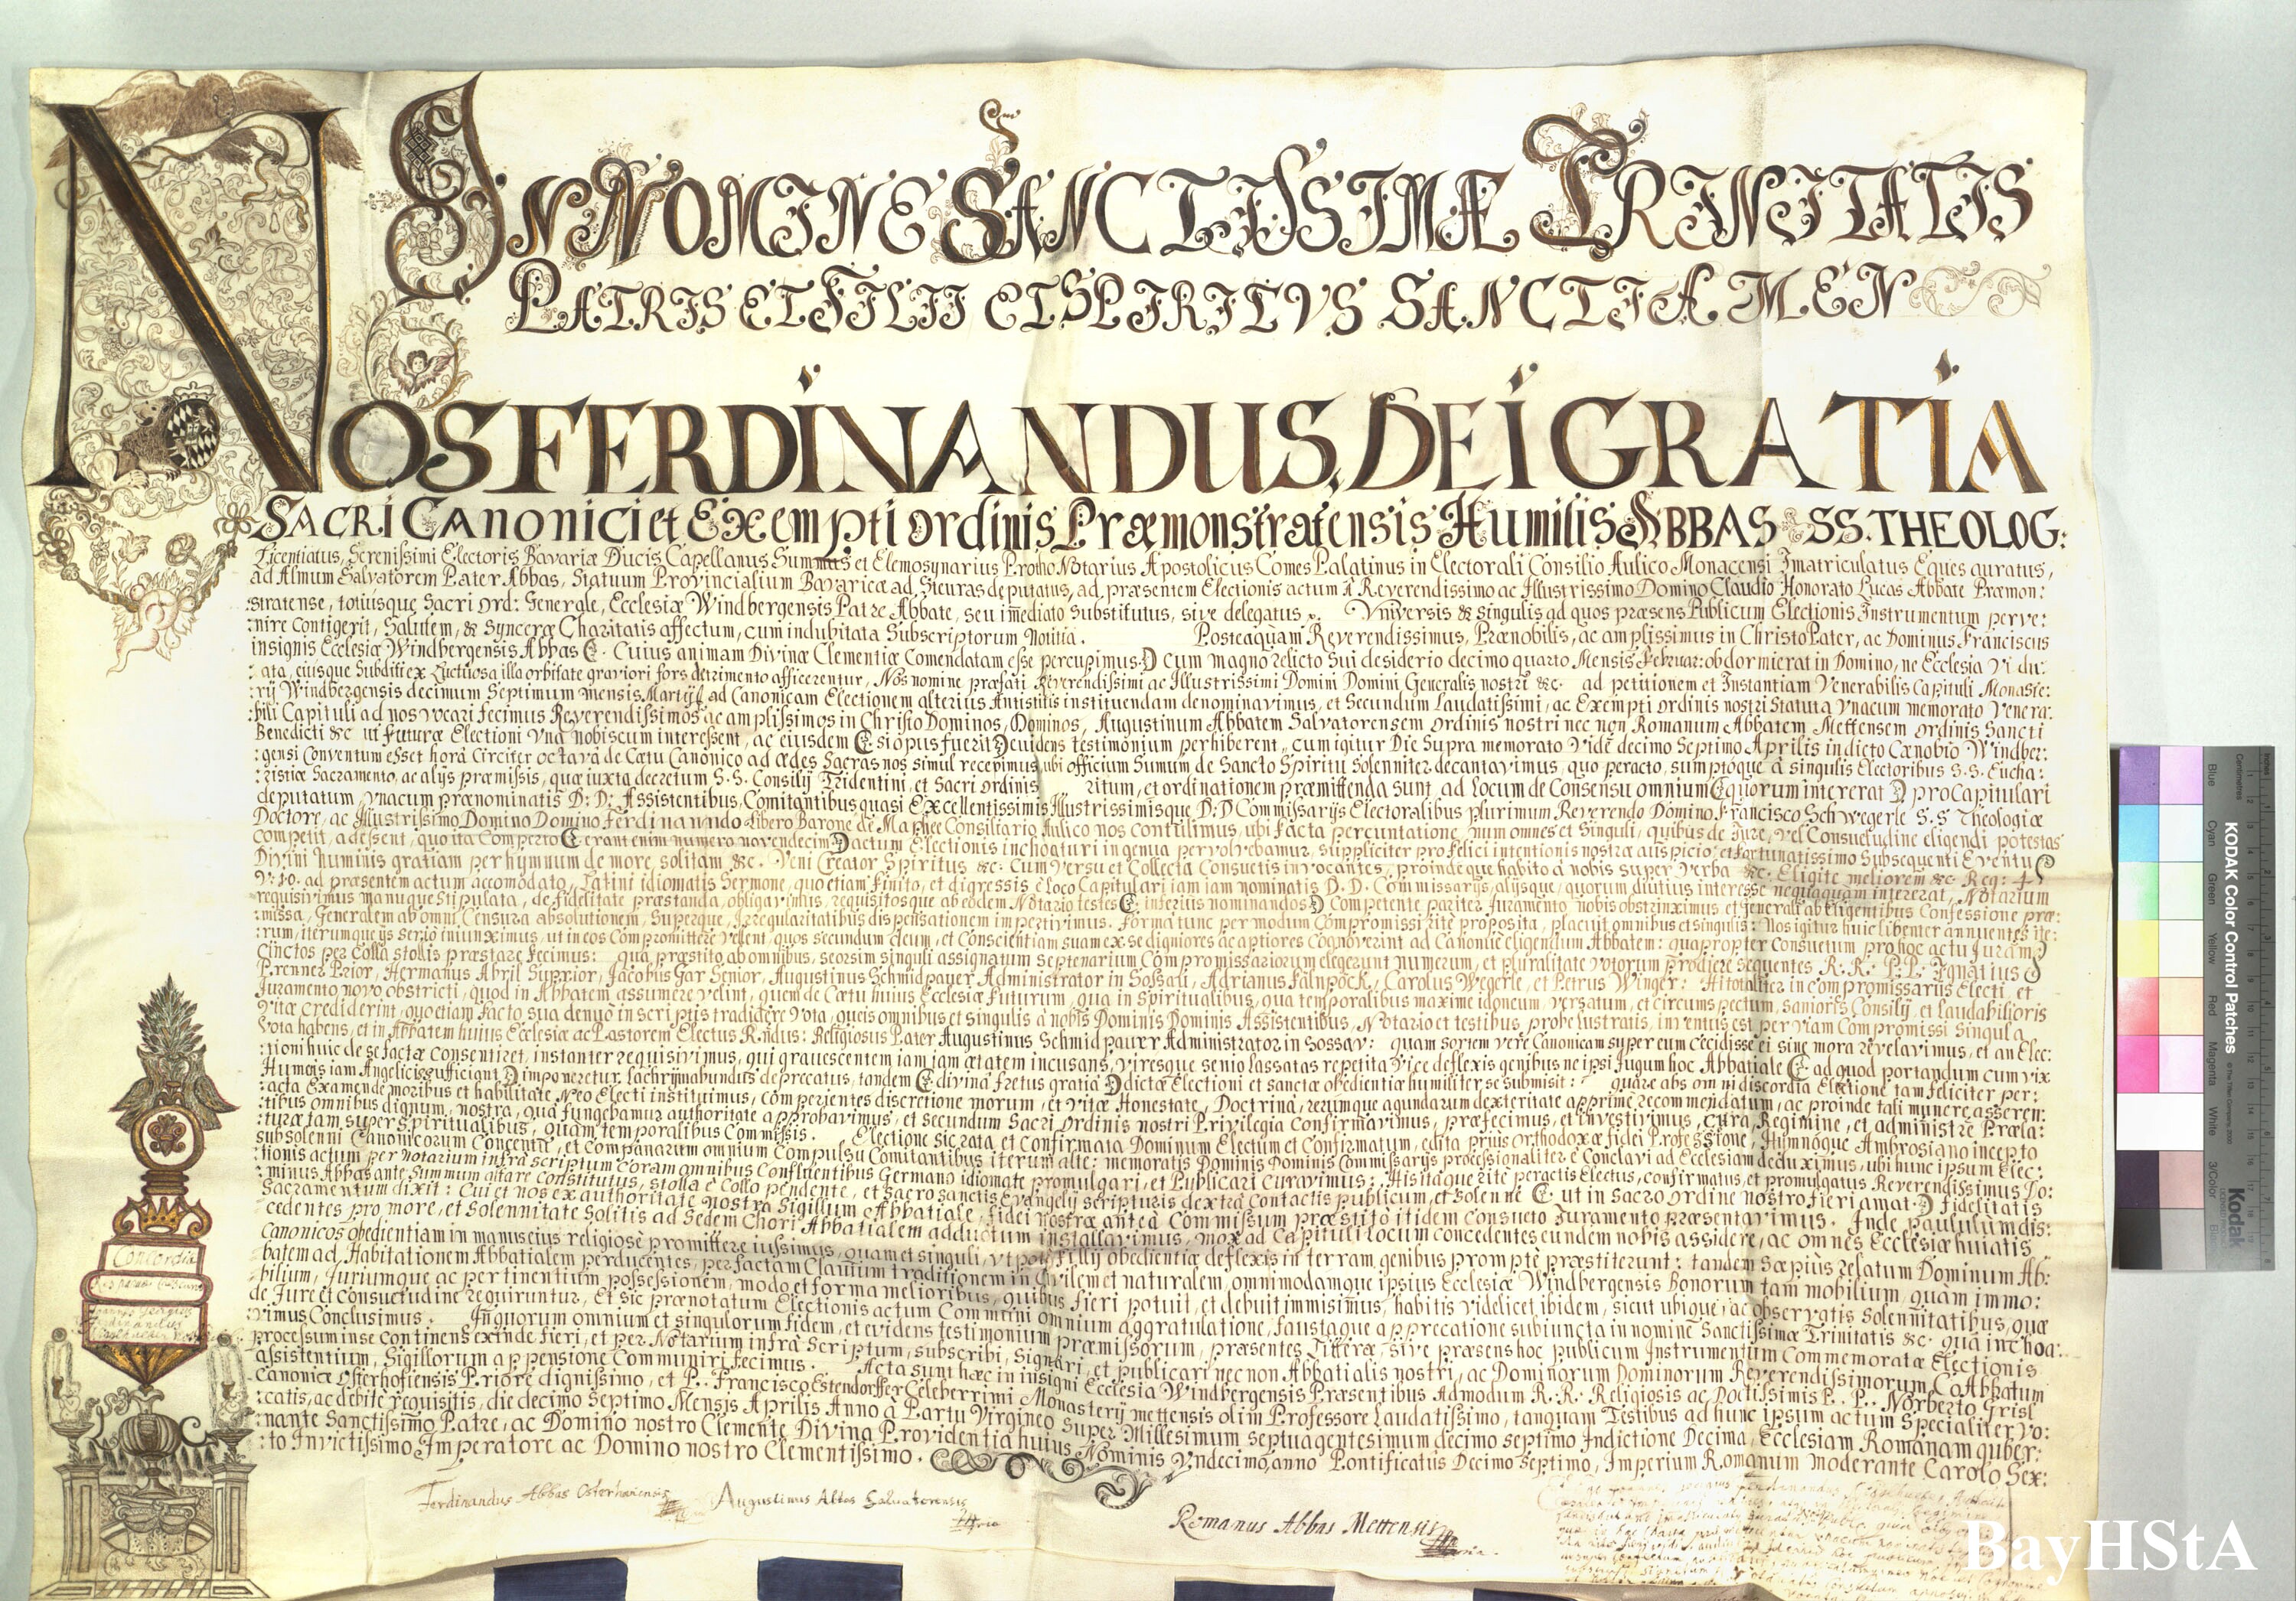 IN NOMINE SANCTISSIMÆ TRINITATIS
PATRIS ET FILII ET SPIRITVS SANCTI AMEN
NOS FERDINANDUS, DEI GRATIA
SACRI CANONICI et Exempti ordinis Præmonstratensis Humilis ABBAS SS. THEOLOG:
Licentiatus, Serenissimi Electoris Bavariæ Ducis Capellanus Summus et Elemosynarius Protho Notarius Apostolicus Comes Palatinus in Electorali Consilio Aulico Monacensi Imatriculatus Eques auratus,
ad Almum Salvatorem Pater Abbas, Statuum Provincialium Bavaricæ ad Steuras deputatus, ad præsentem Electionis actum â Reverendissimo ac Illustrissimo Domino Claudio Honorato Lucas Abbate Præmon:
:stratense, totiusque Sacri Ord: Generale, Ecclesiæ Windbergensis Patre Abbate, seu im̄ediato Substitutus, sive delegatus. Vniversis & singulis ad quos præsens Publicum Electionis Instrumentum perve:
:nire Contigerit, Salutem, & Synceræ Charitatis affectum, cum indubitata Subscriptorum Notitia. Posteaquam Reverendissimus, Prænobilis, ac amplissimus in Christo Pater, ac Dominus Franciscus
insignis Ecclesiæ Windbergensis Abbas (Cuius animam Divinæ Clementiæ Comendatam esse percupimus) cum magno relicto Sui desiderio decimo quarto Mensis Februar: obdormierat in Domino, ne Ecclesia Vi du:
:ata, eiusque Subditi ex Luctuosa illa orbitate graviori fors detrimento afficerentur, Nos nomine præfati Reverendissimi ac Illustrissimi Domini Domini Generalis nostri &c. ad petitionem et Instantiam Venerabilis Capituli Monaste:
:rij Windbergensis decimum Septimum mensis Martij ad Canonicam Electionem alterius Antistitis instituendam denominavimus, et Secundum Laudatissimi, ac Exempti ordinis nostri Statuta Vnacum memorato Venera:
:bili Capituli ad nos vocari fecimus Reverendissimos ac amplissimos in Christo Dominos, Dominos, Augustinum Abbatem Salvatorensem ordinis nostri nec non Romanum Abbatem Mettensem ordinis Sancti
Benedicti &c ut Futuræ Electioni Vna nobiscum interessent, ac eiusdem (si opus fuerit) evidens testimonium perhiberent, cum igitur Die Supra memorato Vide decimo Septimo Aprilis in dicto Cænobio Windber:
:gensi Conventum esset horâ Circiter octavâ de Cœtu Canonico ad ædes Sacras nos simul recepimus, ubi officium Sumum de Sancto Spiritu Solenniter decantavimus, quo peracto, sumptoque â singulis Electoribus S.S. Eucha:
:ristiæ Sacramento, ac alijs præmissis, quæ iuxta decretum S.S. Consilij Tridentini, et Sacri ordinis ritum, et ordinationem præmittenda sunt, ad Locum de Consensu omnium (quorum intererat) pro Capitulari
deputatum, Vnacum prænominatis D: D: Assistentibus, Comitantibus quasi Excellentissimis Illustrissimisque D:D Commissarijs Electoralibus plurimum Reverendo Domino Francisco Schwegerle S.S Theologiæ
Doctore, ac Illustrissimo Domino Domino Ferdinanndo Libero Barone de Maphee Consiliario Aulico nos contulimus, ubi facta percuntatione, num omnes et Singuli, quibus de Iure, vel Consuetudine eligendi potestas
Competit, adessent, quo ita Comperto (erant enim numero novendecim) actum Electionis inchoaturi in genua pervolvebamur, suppliciter pro felici intentionis nostræ auspicio, et fortunatissimo Subsequenti Eventu
Divini Numinis gratiam per hymnum de more solitam &c. Veni Creator Spiritus &c. Cum Versu et Collecta Consuetis invocantes, proinde que habito â nobis super Verba &c. Eligite meliorem &c. Reg: 4
V: 10. ad præsentem actum accomodato, Latini idiomatis Sermone, quo etiam finito, et digressis è loco Capitulari iam iam nominatis D. D. Commissarijs, alijsque, quorum diutius interesse nequaquam intererat, Notarium
requisivimus manuque Stipulata, de fidelitate præstanda, obligavimus, requisitosque ab eodem Notario testes (inferius nominandos) Competente pariter Iuramento nobis obstrinximus et generali ab Eligentibus Confessione præ:
:missa, Generalem ab omni Censura absolutionem, Superque, Irregularitatibus dispensationem impertivimus. Forma tunc per modum Compromissi ritè proposita, placuit omnibus et singulis: Nos igitur huic libenter annuentes ite:
:rum, iterumque ijs serio iniunximus, ut in eos Compromittere vellent, quos secundum deum, et Conscientiam suam ex se digniores ac aptiores Cognoverint ad Canonicè eligendum Abbatem: quapropter Consuetum pro hoc actu Iuram)
Cinctos per Colla stollis præstare fecimus: quâ præstito ab omnibus, seorsim singuli assignatum septenarium Compromissariorum elegerunt numerum, et pluralitate votorum prodiere sequentes R: R: P.P: Ignatius
Prenner Prior, Hermanus Abril Supprior, Jacobus Gar Senior, Augustinus Schmidpauer Administrator in Sossau, Adrianus Falnpöck, Carolus Wegerle, et Petrus Winger: Hi totaliter in compromissarios Electi, et
Juramento novo obstricti, quod in Abbatem assumere velint, quem de Cœtu huius Ecclesiæ Futurum, qua in Spiritualibus, qua temporalibus maxime idoneum, versatum, et circumspectum, sanioris Consilij et laudabilioris
Vitæ crediderint, quo etiam facto, sua denuo in scriptis tradidere Vota, queis omnibus et singulis â nobis Dominis Dominis Assistentibus, Notario et testibus, probe lustratis, inventus est per viam Compromissi Singula
Vota habens, et in Abbatem huius Ecclesiæ ac Pastorem Electus R:ndus: Religiosus Pater Augustinus Schmid pauer Administrator in Sossav: quam sortem vere Canonicam super eum cecidisse ei sine mora revelavimus, et an Elec:
:tioni huic de se factæ consentiret, instanter requisivimus, qui gravescentem iam iam ætatem incusans, Viresque senio lassatas repetita Vice deflexis genibus ne ipsi Iugum hoc Abbatiale (ad quod portandum cum vix
Humeris iam Angelicis sufficiant) imponeretur, lachrymabundus deprecatus, tandem (divina fretus gratia) dictæ Electioni et sanctæ obedientiæ humiliter se submisit: quare abs omni discordia Electione tam feliciter per:
:acta Examen de moribus et habilitate Neo Electi instituimus, comperientes discretione morum, et vitæ Honestate, Doctrinâ, rerumque agundarum dexteritate apprime recommendatum, ac proinde tali munere asseren:
:tibus omnibus dignum, nostra, qua fungebamur authoritate approbavimus, et secundum Sacri Ordinis nostri Privilegia Confirmavimus, præfecimus, et investivimus, cura, Regimine, et administre Præla:
:turæ tam super Spiritualibus, quam temporalibus Commissis. Electione sic rata et confirmata Dominum Electum et Confirmatum, edita prius orthodoxæ fidei Professione, Hymnoque Ambrosiano incepto
subsolenni Canonicorum Concentu, et Companarum omnium Compulsu Comitantibus iterum alte: memoratis Dominis Dominis Commissarijs processionaliter è Conclavi ad Ecclesiam deduximus, ubi hunc ipsum Elec:
:tionis actum per Notarium infrà scriptum coram omnibus Confluentibus Germano idiomate promulgari, et Publicari curavimus: His itaque ritè peractis Electus, confirmatus, et promulgatus Reverendissimus Do:
:minus Abbas ante Summum altare constitutus, stolla è Collo pendente, et Sacro sanctis Evangelij scripturis dextra Contactis publicum, et solenne (ut in Sacro ordine nostro fieri amat) fidelitatis
Sacramentum dixit: Cui et nos ex authoritate nostra Sigillum Abbatiale, fidei nostræ anteà Commissum præstitò itidem consueto Iuramento præsentavimus. Inde paululùm dis:
cedentes pro more, et Solennitate Solitis ad Sedem Chori Abbatialem adductum installavimus, mox ad Capituli locum concedentes eundem nobis assidere, ac omnes Ecclesiæ huiatis
Canonicos obedientiam in manus eius religiosè promittere iussimus, quam et singuli, ut poté Filij obedientiæ deflexis in terram genibus promptè præstiterunt: tandem Sæpiùs relatum Dominum Ab:
batem ad Habitationem Abbatialem perducentes, per factam Clavium traditionem in Civilem et naturalem, omnimodamque ipsius Ecclesiæ Windbergensis Bonorum tam mobilium, quam immo:
bilium, Iuriumque ac pertinentium possessionem, modo et forma melioribus, quibus fieri potuit, et debuit immisimus, habitis videlicet ibidem, sicut ubique, ac observatis Solennitatibus, quæ
de Iure et consuetudine requiruntur, Et sic prænotatum Electionis actum Communi omnium aggratulatione, faustaque apprecatione subiuncta in nomine Sanctissimæ Trinitatis &c. quâ inchoa:
:vimus Conclusimus. In quorum omnium et singulorum fidem, et evidens testimonium præmissorum, præsentes Litteræ, sive præsens hoc publicum Instrumentum Commemoratæ Electionis
processum in se continens exinde fieri, et per Notarium infrà Scriptum, subscribi, Signari, et publicari nec non Abbatialis nostri, ac Dominorum Dominorum Reverendissimorum CoAbbatum
assistentium, Sigillorum appensione Communiri fecimus. Acta sunt hæc in insigni Ecclesia Windbergensis Præsentibus Admodum R: R: Religiosis ac Doctissimis P. P. Norberto Grisl
Canoniæ Osterhofiensis Priore dignissimo, et P. Francisco Estendorffer Celeberrimi Monasterij mettensis olim Professore Laudatissimo, tanquam Testibus ad hunc ipsum actum Specialiter vo:
:catis, ac debitè requisitis, die decimo Septimo Mensis Aprilis Anno â Partu Virgineo Super Millesimum septuagentesimum decimo septimo Indictione Decima, Ecclesiam Romanam guber:
:nante Sanctissimo Patre, ac Domino nostro Clemente Divina Providentia huius Nominis Vndecimo, anno Pontificatus Decimo Septimo, Imperium Romanum moderante Carolo Sex:
:to Invictissimo Imperatore ac Domino nostro Clementissimo.
Concordia
Ferdinandus Abbas Osterhoviensis
Augustinus Abbas Salvatorensis
Romanus Abbas Mettensis
BayHStA
KODAK Color Control Patches
Blue Cyan Green Yellow Red Magenta White 3/Color Black
Kodak